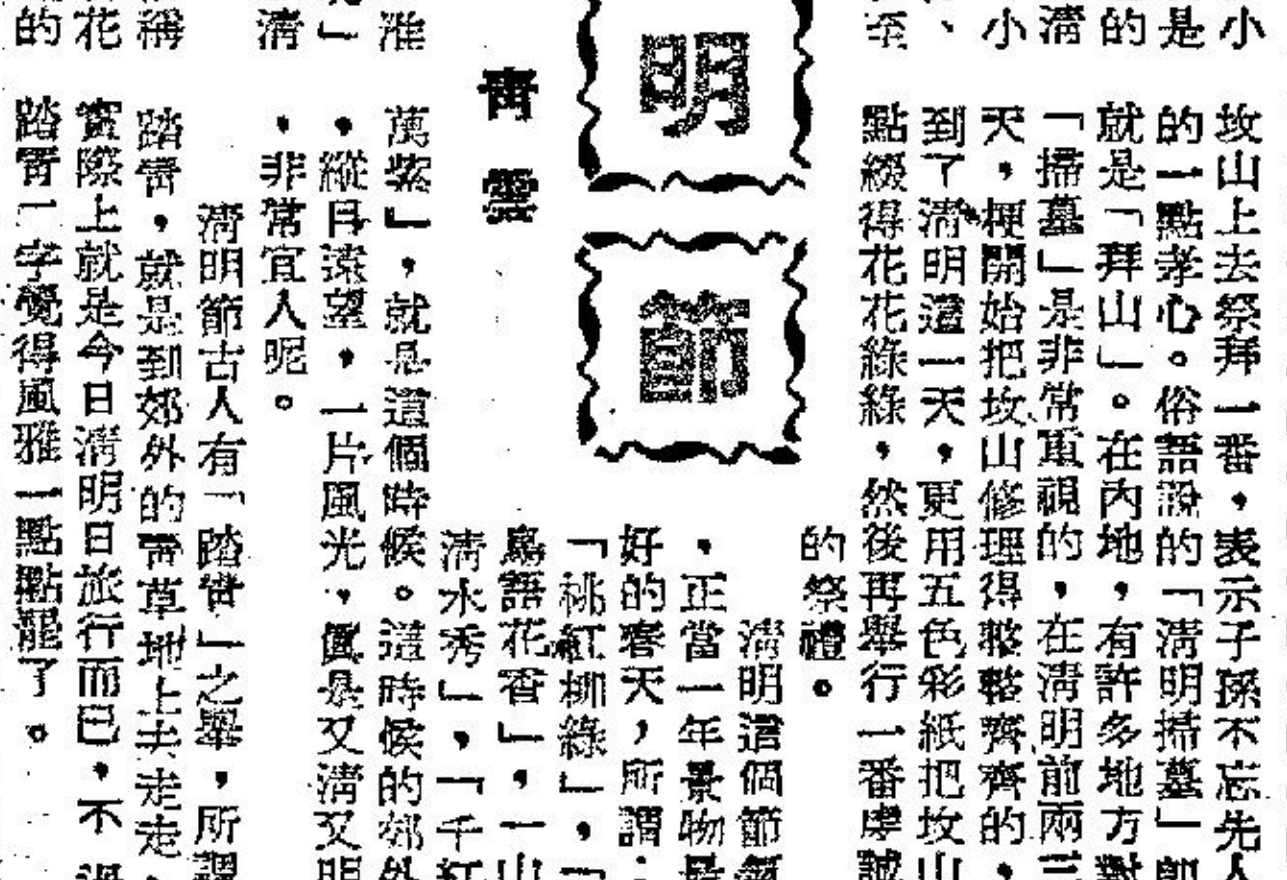 小 坟山上去祭拜一番,表示子孫不忘先人
是 的一點孝心。俗語說的「清明掃墓」即
的 就是「拜山」。在內地,有許多地方對
清 「掃墓」是非常重視的,在清明前兩三
小 天,便開始把坟山修理得整整齊齊的,
、 到了清明這一天,更用五色彩紙把坟山
點綴得花花綠綠,然後再舉行一番虔誠
的祭禮。
明節
青雲
清明這個節氣
,正當一年景物最
好的春天,所謂:
「桃紅柳綠」,「
鳥語花香」,「山
清水秀」,「千紅
准 萬紫」,就是這個時候。這時候的郊外
」 ,縱目遠望,一片風光,真是又清又明
清 ,非常宜人呢。
清明節古人有「踏青」之舉,所謂
稱 踏青,就是到郊外的青草地上去走走,
花 實際上就是今日清明日旅行而已,不過
的 踏青二字覺得風雅一點點罷了。